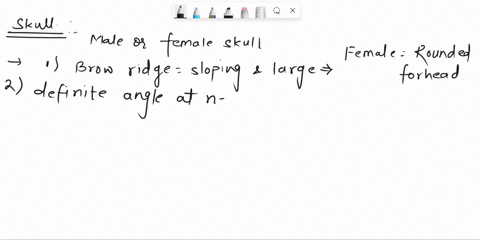 Skull :-
Male or female skull
→ 1) Brow ridge = sloping & large → Female = Rounded forhead
2) definite angle at n-